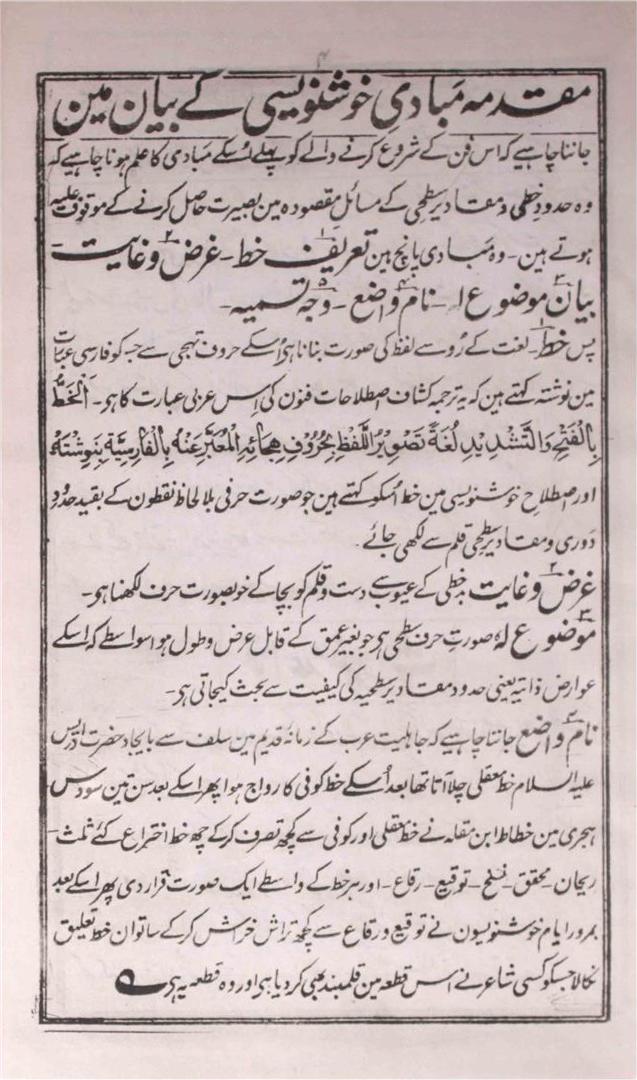 ۴
مقدمہ مبادیِ خوشنویسی کے بیان مین
جاننا چاہیے کہ اس فن کے شروع کرنے والے کو پہلے اُسکے مبادی کا علم ہونا چاہیے کہ
وہ حدودِ خطی و مقادیر سطحی کے مسائل مقصودہ مین بصیرت حاصل کرنے کے موقوف علیہ
ہوتے ہین - وہ مبادی پانچ ہین تعریف۱ خط - غرض۲ و غایت -
بیان۳ موضوع لہ - نام۴ واضع - وجہ۵ تسمیہ -
پس خط۱ - لغت کے رُو سے لفظ کی صورت بنانا ہی اُسکے حروف تہجی سے جسکو فارسی عبارت
مین نوشتہ کہتے ہین کہ یہ ترجمہ کشاف اصطلاحات فنون کی اِس عربی عبارت کا ہو - اَلْخَطُّ
بِالْفَتْحِ وَالتَّشْدِیْدِ لُغَةً تَصْوِیْرُ اللَّفْظِ بِحُرُوْفِ هِجَائِهِ الْمُعَبَّرُ عَنْهُ بِالْفَارِسِیَّةِ بِنَوِشْتَهْ
اور اصطلاح خوشنویسی مین خط اُسکو کہتے ہین جو صورت حرفی بلا لحاظ نقطون کے بقید حدودِ
دَوری و مقادیر سطحی قلم سے لکھی جائے -
غرض۲ و غایت بدخطی کے عیوب سے دست و قلم کو بچا کے خوبصورت حرف لکھنا ہی -
موضوع۳ لہٗ صورتِ حرف سطحی ہی جو بغیر عمق کے قابل عرض و طول ہو اسواسطے کہ اسکے
عوارض ذاتیہ یعنی حدود مقادیر سطحیہ کی کیفیت سے بحث کیجاتی ہی -
نام۴ واضع جاننا چاہیے کہ جاہلیت عرب کے زمانۂ قدیم مین سلف سے بایجاد حضرت ادریس
علیہ السلام خط معقلی چلا آتا تھا بعد اُسکے خط کوفی کا رواج ہوا پھر اسکے بعد سن تین سو دس
ہجری مین خطاط ابن مقلہ نے خط معقلی اور کوفی سے کچھ تصرف کرکے چھ خط اختراع کئے ثلث
ریحان - محقق - نسخ - توقیع - رقاع - اور ہر خط کے واسطے ایک صورت قرار دی پھر اسکے بعد
بمرور ایام خوشنویسون نے توقیع و رقاع سے کچھ تراش خراش کرکے ساتوان خط تعلیق
نکالا جسکو کسی شاعر نے اس قطعہ مین قلمبند بھی کردیا ہی اور وہ قطعہ یہ ہی